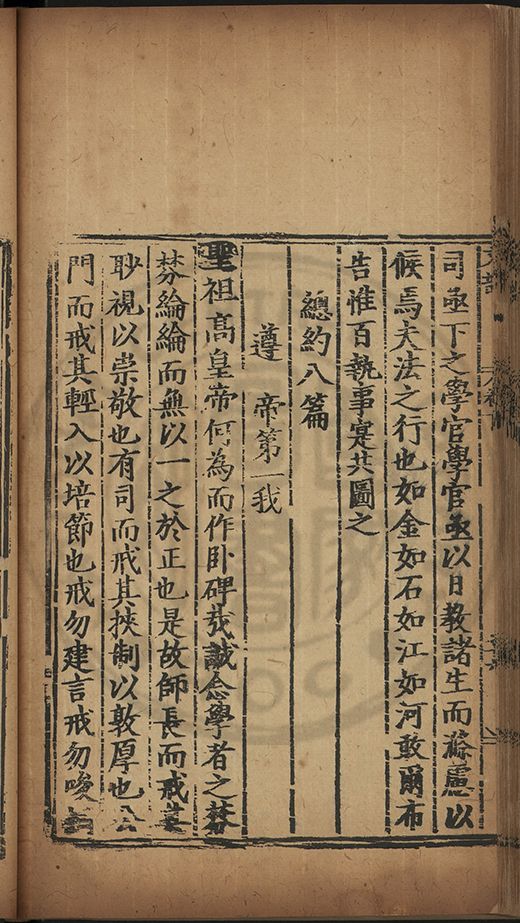 司亟下之學官學官亟以日教諸生而懸憲以
候焉夫法之行也如金如石如江如河敢爾布
告惟百執事寔共圖之
總約八篇
遵帝第一我
聖祖高皇帝何為而作卧碑哉誠念學者之棼
棼綸綸而無以一之於正也是故師長而戒其
眇視以崇敬也有司而戒其挾制以敦厚也公
門而戒其輕入以培節也戒勿建言戒勿唆